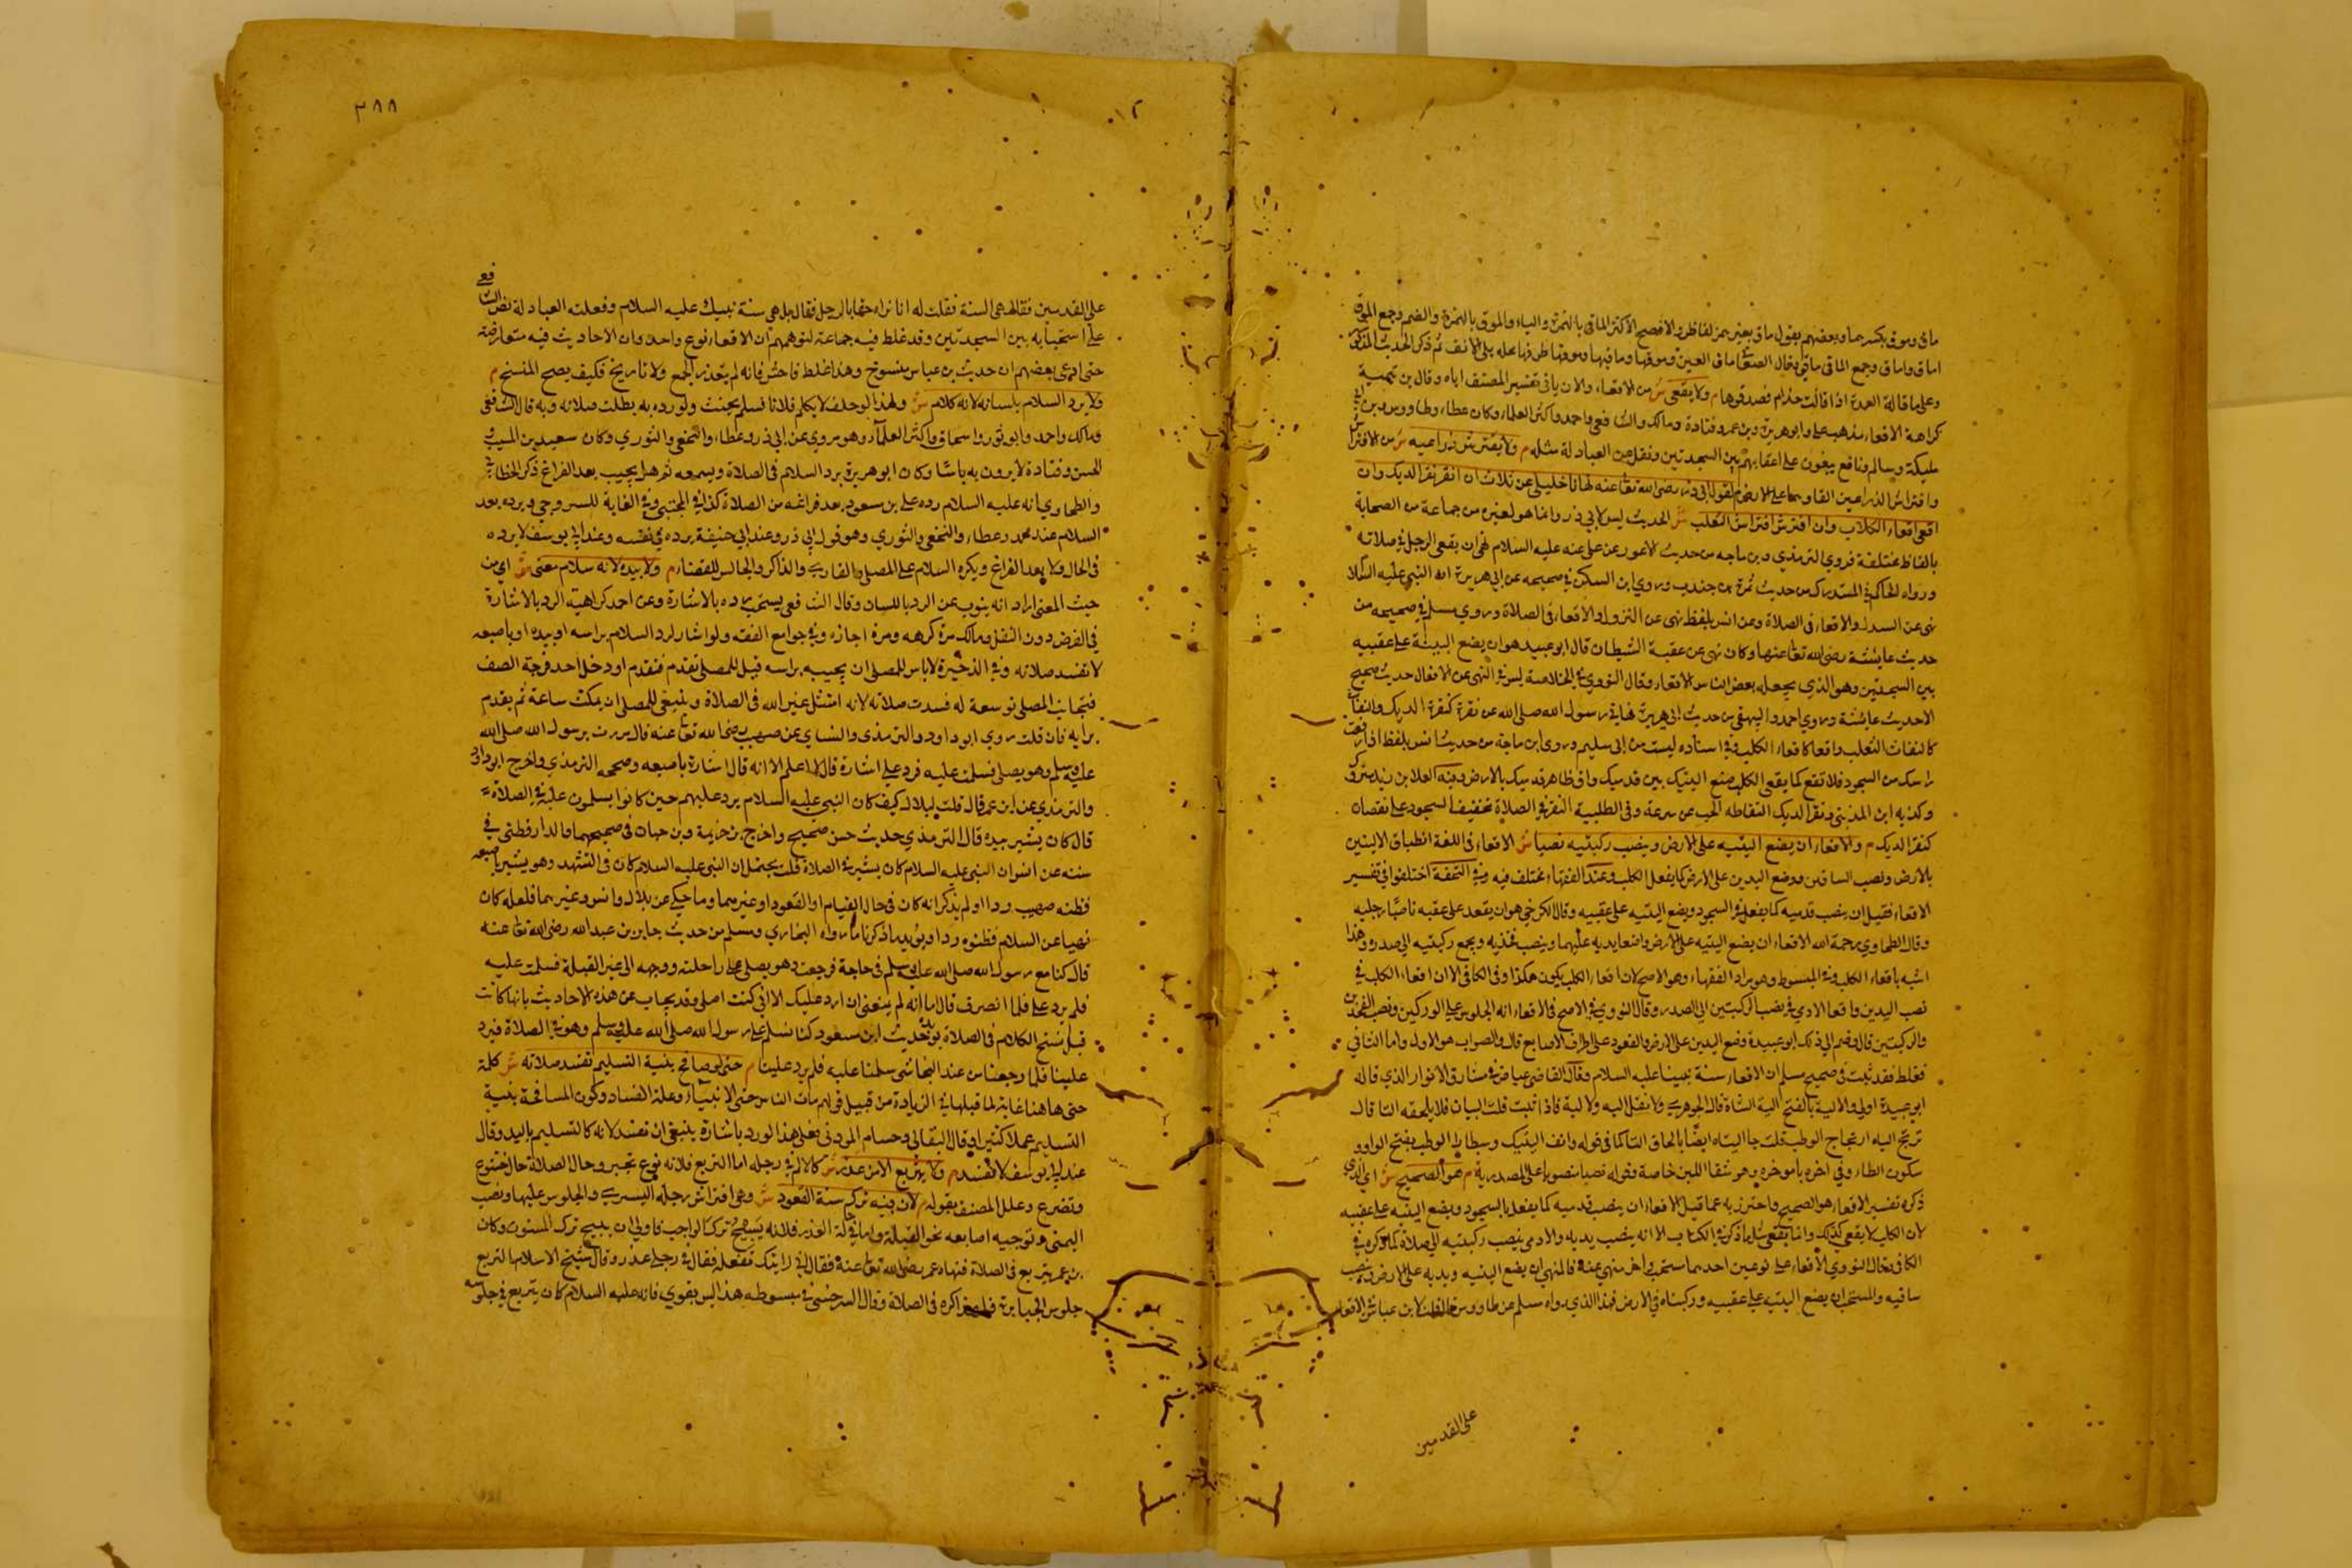 ماق وموق بكسرهما وبعضهم يقول ماق بغير همز لفاظ والافصح الاكثر الماقي بالهمزة والياء والموق بالهمزة والضم وجمع الموق
اماق واماق وجمع الماقي ماقي وقال الصغا ماق العين وموقها وماقيها وموقها طرفها مما يلي الانف ثم ذكر الحديث المذكور
وعلى ما قاله العدة اذا قالت حذام فصدقوها م ولا يقعي ش من الاقعاء والان ياتي تفسير المصنف اياه وقال بن تيمية
كراهة الاقعاء مذهب علي وابو هريرة وبن عمر وقتادة ومالك والشافعي واحمد واكثر العلماء وكان عطاء وطاووس وبن ابي
مليكة وسالم ونافع يقعون على اعقابهم بين السجدتين ونقل عن العبادلة مثله م ولا يفترش ذراعيه ش من الافتراش
وافتراش الذراعين القاوهما على الارض م لقول ابي ذر رضي الله تعا عنه نهاني خليلي عن ثلاث ان انقر نقر الديك وان
اقعي اقعاء الكلاب وان افترش افتراش الثعلب ش الحديث ليس لابي ذر وانما هو لغيره من جماعة من الصحابة
بالفاظ مختلفة فروي الترمذي وبن ماجه من حديث الاعور عن علي عنه عليه السلام نهى ان يقعي الرجل في صلاته
ورواه الحاكم في المستدرك من حديث سمرة بن جندب وروي ابن السكن في صحيحه عن ابي هريرة ان النبي عليه السلام
نهى عن السدل والاقعاء في الصلاة وعن انس بلفظ نهى عن التزول والاقعاء في الصلاة وروي مسلم في صحيحه من
حديث عايشة رضي الله تعا عنها وكان نهى عن عقبة الشيطان قال ابو عبيد هو ان يضع اليتيه على عقبيه
بين السجدتين وهو الذي يجعله بعض الناس الاقعاء وقال النووي في الخلاصة ليس في النهي عن الاقعاء حديث صحيح
الا حديث عايشة وروي احمد والبيهقي من حديث ابي هريرة نهاني رسول الله صلى الله عن نقرة كنقرة الديك والتفات
كالتفات الثعلب واقعا كاقعاء الكلب وفي اسناده ليث بن ابي سليم وروى ابن ماجة من حديث انس بلفظ اذا رفعت
راسك من السجود فلا تقع كما يقعي الكلب ضع اليتيك بين قدميك والزق ظاهر قدميك بالارض وفيه العلا بن زيد متروك
وكذبه ابن المديني ونقر الديك التقاطه الحب عن سرعة وفي الطلبية النقر في الصلاة تخفيف السجود على نقصان
كنقر الديك م والاقعاء ان يضع اليتيه على الارض وينصب ركبتيه نصبا ش الاقعاء في اللغة انطباق الاليتين
بالارض ونصب الساقين ووضع اليدين على الارض كما يفعل الكلب وعند الفقهاء مختلف فيه وفي التحفة اختلفوا في تفسير
الاقعاء فقيل ان ينصب قدميه كما يفعل في السجود ويضع اليتيه على عقبيه وقال الكرخي هو ان يقعد على عقبه ناصبا رجليه
وقال الطحاوي رحمة الله الاقعاء ان يضع اليتيه على الارض واضعا يديه عليهما وينصب فخذيه ويجمع ركبتيه الى صدره وهذا
اشبه باقعاء الكلب وفي المبسوط وهو مراد الفقهاء وهو الاصح لان اقعاء الكلب يكون هكذا وفي الكافي الا ان اقعاء الكلب في
نصب اليدين واقعا الادمي في نصب الركبتين الى الصدر وقال النووي في الاصح في الاقعاء انه الجلوس على الوركين ونصب الفخذين
والركبتين قال وضم الى ذلك ابو عبيدة وضع اليدين على الارض والقعود على اطراف الاصابع قال والصواب هو الاول واما الثاني
فغلط فقد ثبت في صحيح مسلم ان الاقعاء سنة نبينا عليه السلام وقال القاضي عياض في مشارق الانوار الذي قاله
ابو عبيدة اولى والالية بالفتح الية الشاة قال الجوهري ولا تقل اليه ولا لية فاذا ثنيت قلت اليان فلا يلحقه التا قال
ترتج الياه ارتجاج الوطب قلت جا اليتاه ايضا بالحاق التا كما في قوله وانف اليتيك وسطا الوطب بفتح الواو و
سكون الطاء وفي اخره باموخره وهو سقا اللبن خاصة وقوله نصبا منصوب على المصدرية م هو الصحيح ش اي الذي
ذكره تفسير الاقعاء هو الصحيح واحترز به عما قيل الاقعاء ان ينصب قدميه كما يفعل بالسجود ويضع اليتيه على عقبيه
لان الكلب لا يقعي كذلك وانما يقعي مثل ما ذكر في الكتاب الا انه ينصب يديه والادمي ينصب ركبتيه الى صلاة كما ذكره في
الكافي وقال النووي الاقعاء على نوعين احدهما مستحب والاخر منهي عنه فالمنهي ان يضع اليتيه ويديه على الارض وينصب
ساقيه والمستحب ان يضع اليتيه على عقبيه وركبتاه في الارض فهذا الذي رواه مسلم عن طاووس قلت لابن عباس في الاقعاء
على القدمين
٣٨٨
على القدمين فقال هي السنة فقلت له انا نراه جفا بالرجل فقال بل هي سنة نبيك عليه السلام وفعلته العبادلة نص الشافعي
على استحبابه بين السجدتين وقد غلط فيه جماعة لتوهمهم ان الاقعاء نوع واحد وان الاحاديث فيه متعارضة
حتى ادعى بعضهم ان حديث بن عباس منسوخ وهذا غلط فاحش فانه لم يتعذر الجمع ولا تاريخ فكيف يصح النسخ م
ولا يرد السلام بلسانه لانه كلام ش ولهذا لو حلف لا يكلم فلانا فسلم يحنث ولو رده به بطلت صلاته وبه قال الشافعي
ومالك واحمد وابو ثور واسحاق واكثر العلماء وهو مروي عن ابي ذر وعطاء والنخعي والثوري وكان سعيد بن المسيب و
الحسن وقتادة لا يرون به باسا وكان ابو هريرة يرد السلام في الصلاة ويسمعه ثم هل يجيب بعد الفراغ ذكر الخطابي
والطحاوي انه عليه السلام رده على بن مسعود بعد فراغه من الصلاة كذا في المجتبى وفي الغاية للسروجي ويرده بعد
السلام عند محمد وعطاء والنخعي والثوري وهو قول ابي ذر وعند ابي حنيفة يرده في نفسه وعند ابي يوسف لا يرده
في الحال ولا بعد الفراغ ويكره السلام على المصلي والقاري والذاكر والجالس للقضاء م ولا بيده لانه سلام معنى ش اي من
حيث المعنى اراد انه ينوب عن الرد باللسان وقال الشافعي يستحب رده بالاشارة وعن احمد كراهية الرد بالاشارة
في الفرض دون النفل ومالك مرة كرهه ومرة اجازه وفي جوامع الفقه ولو اشار لرد السلام براسه او بيده او باصبعه
لا تفسد صلاته وفي الذخيرة لا باس للمصلي ان يجيبه براسه قيل للمصلي تقدم فتقدم او دخل احد فرجة الصف
فتجانب المصلي توسعة له فسدت صلاته لانه امتثل غير الله في الصلاة وينبغي للمصلي ان يمكث ساعة ثم يقدم
برايه فان قلت روي ابو داود والترمذي والنساي عن صهيب رضي الله تعا عنه قال مررت برسول الله صلى الله
عليه وسلم وهو يصلي فسلمت عليه فرد علي اشارة قال لا اعلم الا انه قال اشارة باصبعه وصححه الترمذي واخرج ابو داود
والترمذي عن ابن عمر قال قلت لبلال كيف كان النبي عليه السلام يرد عليهم حين كانوا يسلمون عليه في الصلاة
قال كان يشير بيده قال الترمذي حديث حسن صحيح واخرج بن خزيمة وبن حبان في صحيحهما والدارقطني في
سننه عن انس ان النبي عليه السلام كان يشير في الصلاة قلت يحتمل ان النبي عليه السلام كان في التشهد وهو يشير باصبعه
فظنه صهيب ردا ولم يذكر انه كان في حال القيام او القعود او غيرهما وما حكي عن بلال وانس وغيرهما فلعله كان
نهيا عن السلام فظنوه ردا ويؤيد ما ذكرنا ما رواه البخاري ومسلم من حديث جابر بن عبد الله رضي الله تعا عنه
قال كنا مع رسول الله صلى الله عليه وسلم في حاجة فرجعت وهو يصلي على راحلته ووجهه الى غير القبلة فسلمت عليه
فلم يرد علي فلما انصرف قال اما انه لم يمنعني ان ارد عليك الا اني كنت اصلي وقد يجاب عن هذه الاحاديث بانها كانت
قبل نسخ الكلام في الصلاة يؤيده حديث ابن مسعود كنا نسلم على رسول الله صلى الله عليه وسلم وهو في الصلاة فيرد
علينا فلما رجعنا من عند النجاشي سلمنا عليه فلم يرد علينا م حتى لو صافح بنية التسليم تفسد صلاته ش كلمة
حتى هاهنا غاية لما قبلها في الزيادة من قبيل قولهم مات الناس حتى الانبياء وعلة الفساد وكون المصافحة بنية
التسليم عملا كثيرا وقال البقالي وحسام المودني فعلى هذا لو رد باشارة ينبغي ان تفسد لانه كالتسليم باليد وقال
عند ابي يوسف لا تفسد م ولا يتربع الا من عذر ش كالالم في رجله اما التربع فلانه نوع تجبر وحال الصلاة حال خشوع
وتضرع وعلل المصنف بقوله م لان فيه ترك سنة القعود ش وهي افتراش رجله اليسرى والجلوس عليها ونصب
اليمنى وتوجيه اصابعه نحو القبلة واما في حالة العذر فلانه يبيح ترك الواجب فاولى ان يبيح ترك المسنون وكان
بن عمر يتربع في الصلاة فنهاه عمر رضي الله تعا عنه فقال اني رايتك تفعله فقال في رجلي عذر وقال شيخ الاسلام التربع
جلوس الجبابرة فلهذا كره في الصلاة وقال السرخسي في مبسوطه هذا ليس بقوي فانه عليه السلام كان يتربع في جلوسه